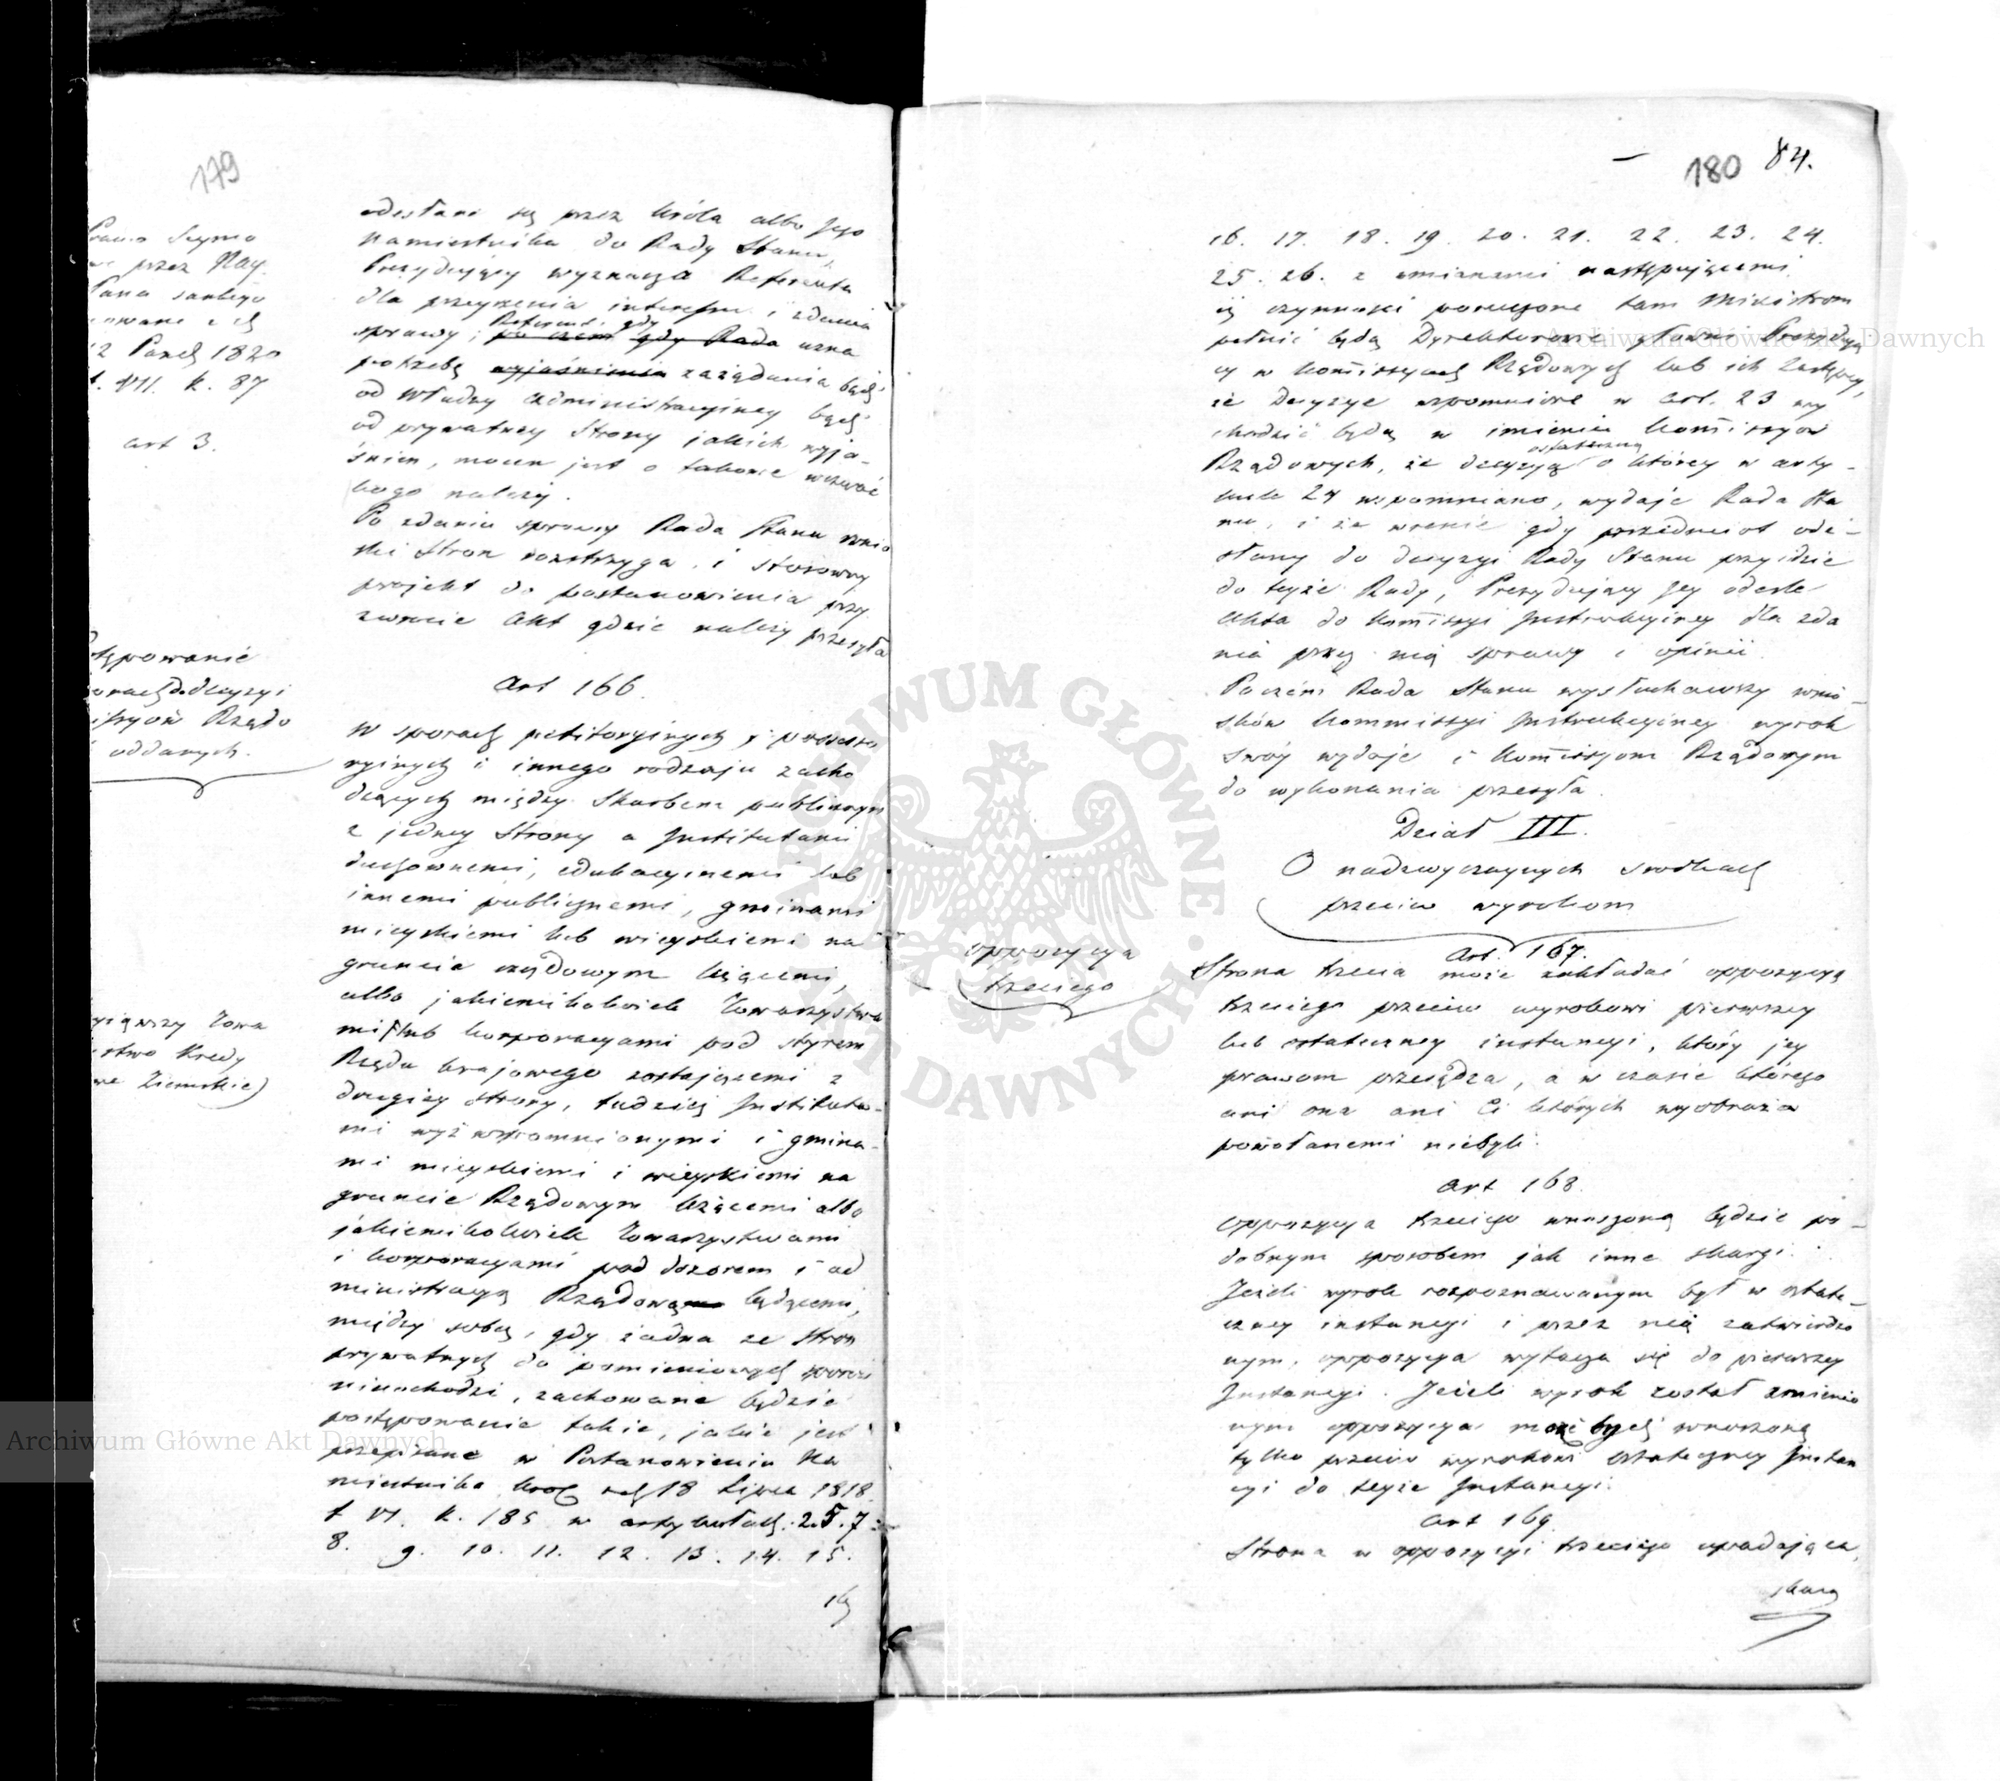 179
Prawo Seymo
we przez Nay.
Pana sankcyo
nowane z d
12 Pazd 1820
t. VII. k. 87
art 3.
odesłani są przez Króla albo Jego
Namiestnika do Rady Stanu,
Prezydujący wyznacza Referenta
dla przeyrzenia interessu i zdania
sprawy; Referent gdy po czem gdy Rada uzna
potrzebę wyjaśnienia zażądania bądź
od Władzy administracyiney bądź
od prywatney Strony jakich wyja-
śnień, mocen jest o takowe wezwać
kogo należy.
Po zdaniu sprawy Rada Stanu wnio
ski Stron rozstrzyga, i stosowny
projekt do postanowienia przy
zwrocie Akt gdzie należy przesyła
Postępowanie
w sporach do decyzyi
Kommissyów Rządo
oddanych.
Art 166.
W sporach petitoryinych, i possesso
ryinych i innego rodzaju zacho
dzących między Skarbem publicznym
z jedney Strony a Instytutami
duchownemi, edukacyinemi lub
innemi publicznemi, gminami
mieyskiemi lub wieyskiemi na
gruncie rządowym leżącemi,
albo jakiemikolwiek Towarzystwa
mi lub korporacyami pod sterem
Rządu krajowego zostającemi z
drugiey strony, tudzież Instituta-
mi wyż wspomnionymi i gmina-
mi mieyskiemi i wieyskiemi na
gruncie Rządowym leżącemi albo
jakiemikolwiek Towarzystwami
i korporacyami pod dozorem i ad
ministracyą Rządową będącemi,
między sobą, gdy żadna ze stron
prywatnych do pomienionych sporów
niewchodzi, zachowane będzie
postępowanie takie, jakie jest
przepisane w Postanowieniu Na
miestnika Król. z d. 18 Lipca 1818
t VI. k. 185 w artykułach. 2. 5. 7.
8. 9. 10. 11. 12. 13. 14. 15.
16
wyiąwszy Towa
rzystwo Kredy
towe Ziemskie)
180 84.
16. 17. 18. 19. 20. 21. 22. 23. 24.
25. 26. z zmianami następującemi
iż czynności poruczone tam Ministrom
pełnić będą Dyrektorowie główni Prezydują
cy w Kommissyach Rządowych lub ich Zastępcy,
że Decyzye wspomnione w art. 23 wy
chodzić będą w imieniu Kommissyów
Rządowych, że decyzyą ostateczną o którey w arty-
kule 24 wspomniano, wydaje Rada Sta
nu, i że wreszcie gdy przedmiot ode-
słany do decyzyi Rady Stanu przyidzie
do teyże Rady, Prezydujący Jey odeśle
Akta do Kommissyi Instrukcyiney dla zda
nia przez nią sprawy i opinii.
Poczém Rada Stanu wysłuchawszy wnio-
sków Kommissyi Instrukcyiney wyrok
swóy wydaje i Kommissyom Rządowym
do wykonania przesyła.
Dział III.
O nadzwyczaynych srodkach
przeciw wyrokom
Art. 167.
oppozycya
trzeciego
Strona trzecia może zakładać oppozycyą
trzeciego przeciw wyrokowi pierwszey
lub ostateczney instancyi, który jey
prawom przesądza, a w czasie którego
ani ona ani Ci których wyobraża
powołanemi niebyli.
Art 168.
Oppozycya trzeciego wnoszoną będzie po-
dobnym sposobem jak inne skargi.
Jeżeli wyrok rozpoznawanym był w ostate-
czney instancyi i przez nią zatwierdzo
nym, oppozycya wytacza się do pierwszey
Instancyi. Jeżeli wyrok został zmienio
nym oppozycya może bydź wnoszoną
tylko przeciw wyrokowi ostateczney Instan
cyi do teyże Instancyi.
Art 169.
Strona w oppozycyi trzeciego upadająca,
skarg
ARCHIWUM GŁÓWNE AKT DAWNYCH
Archiwum Główne Akt Dawnych
Archiwum Główne Akt Dawnych